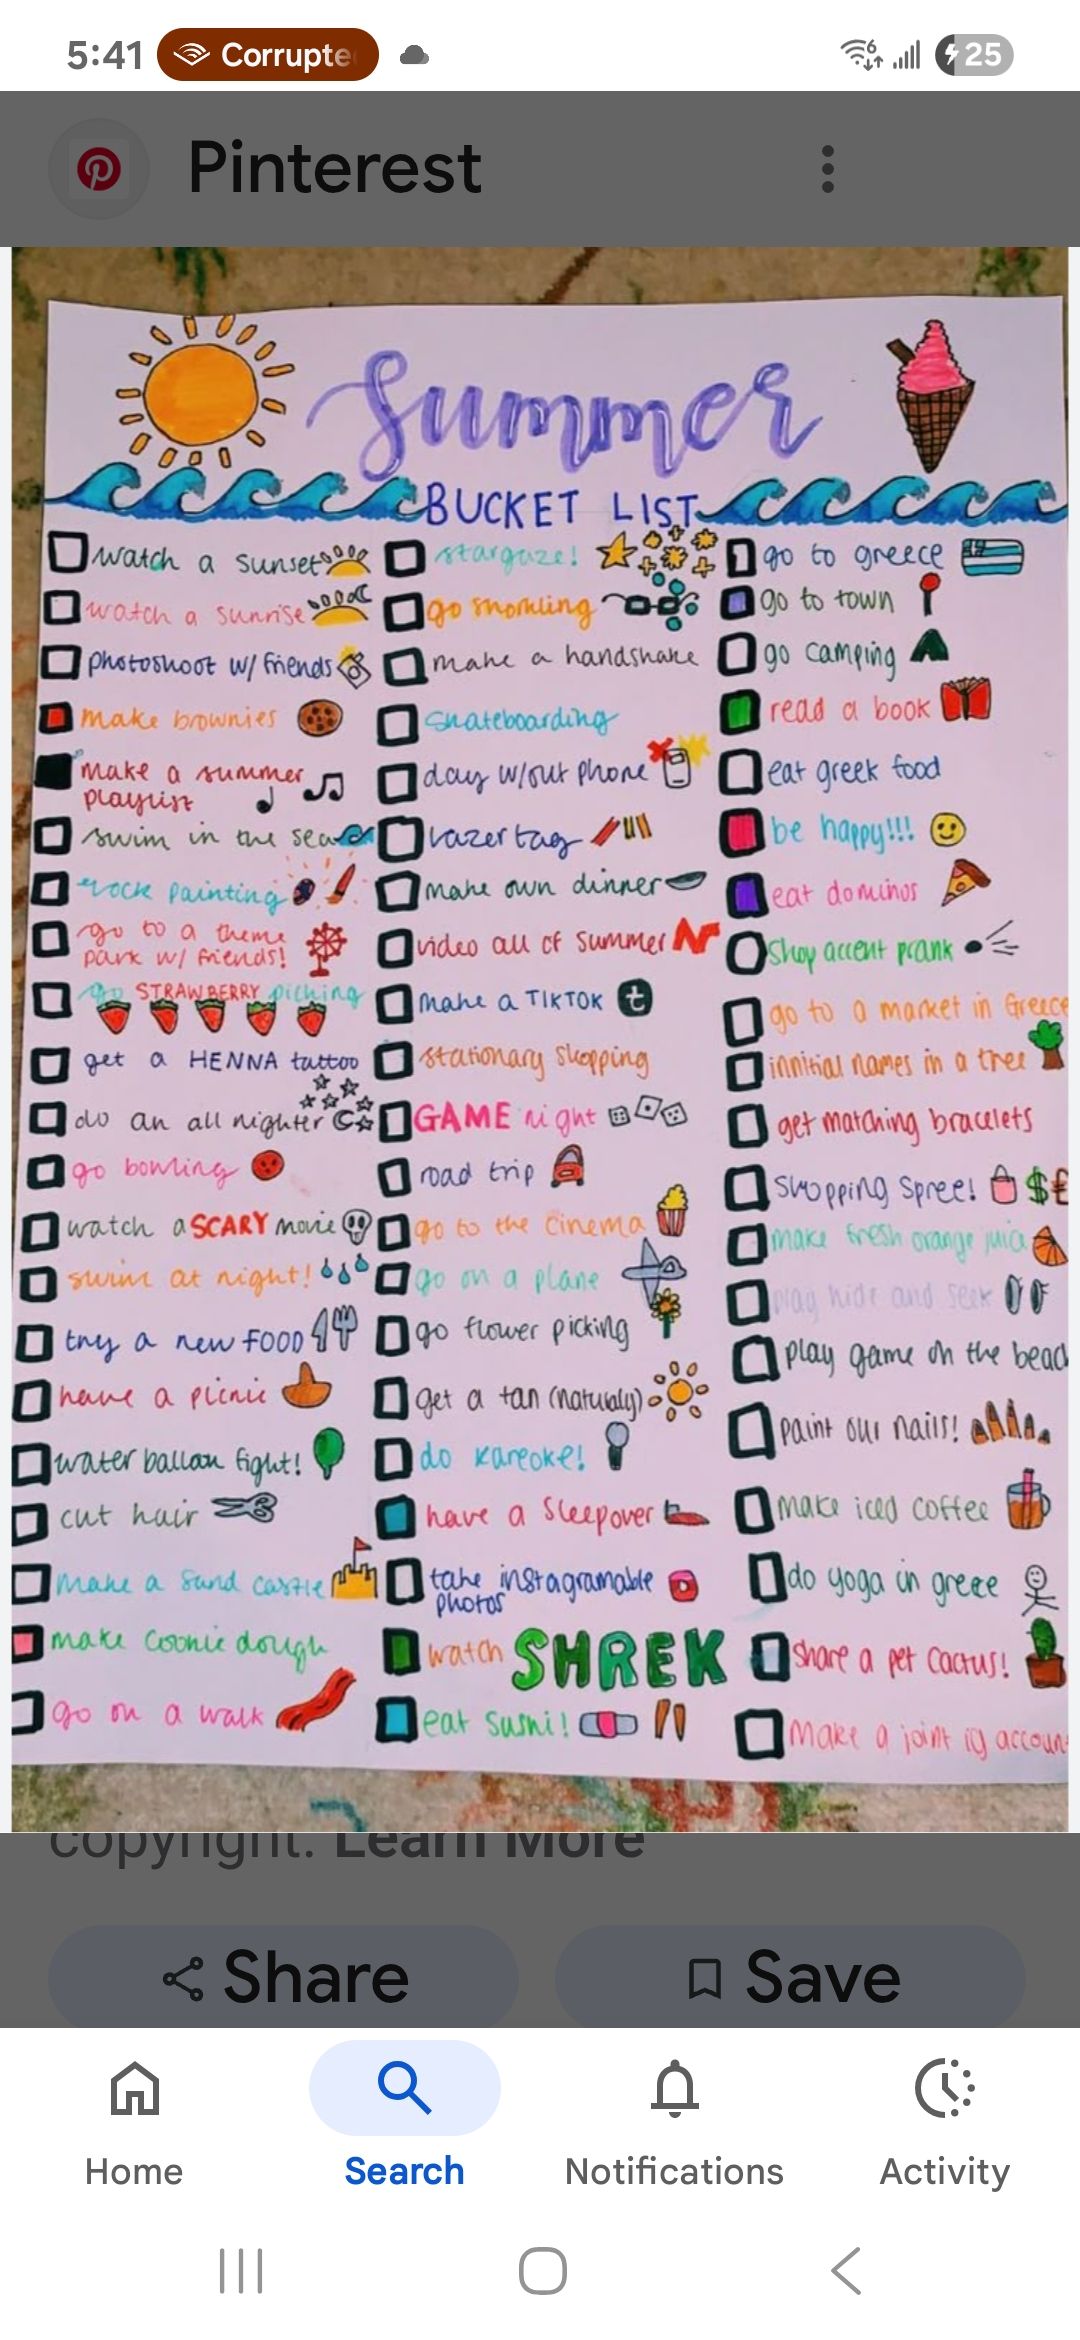 5:41 Corrupte 25
Pinterest
Summer
BUCKET LIST
watch a sunset
watch a sunrise
photoshoot w/ friends
make brownies
make a summer
playlist
swim in the sea
rock painting
go to a theme
park w/ friends!
go STRAWBERRY picking
get a HENNA tattoo
do an all nighter
go bowling
watch a SCARY movie
swim at night!
try a new FOOD
have a picnic
water ballon fight!
cut hair
make a sand castle
make cookie dough
go on a walk
stargaze!
go snorkling
make a handshake
skateboarding
day w/out phone
lazer tag
make own dinner
video all of summer
make a TIKTOK
stationary shopping
GAME night
road trip
go to the cinema
go on a plane
go flower picking
get a tan (naturaly)
do kareoke!
have a sleepover
take instagramable
photos
watch SHREK
eat sushi!
go to greece
go to town
go camping
read a book
eat greek food
be happy!!!
eat dominos
shop accent prank
go to a market in Greece
innitial names in a tree
get matching bracelets
shopping spree! $£
make fresh orange juice
play hide and seek
play game on the beach
paint our nails!
make iced coffee
do yoga in greece
share a pet cactus!
Make a joint ig accoun
copyright. Learn More
Share Save
Home Search Notifications Activity